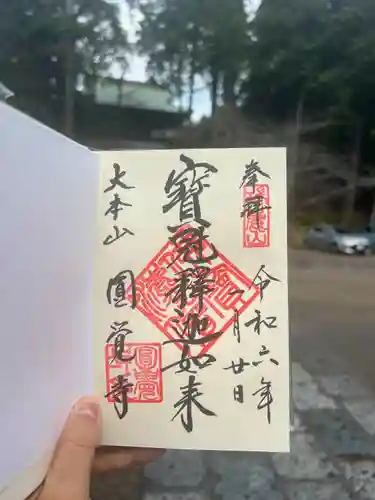 奉拝
令和六年
二月廿日
寳冠釋迦如来
大本山
圓覺寺